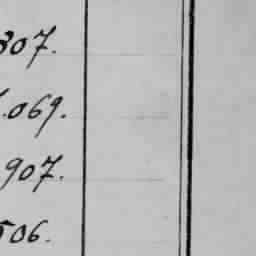 807.
.069.
907.
506.